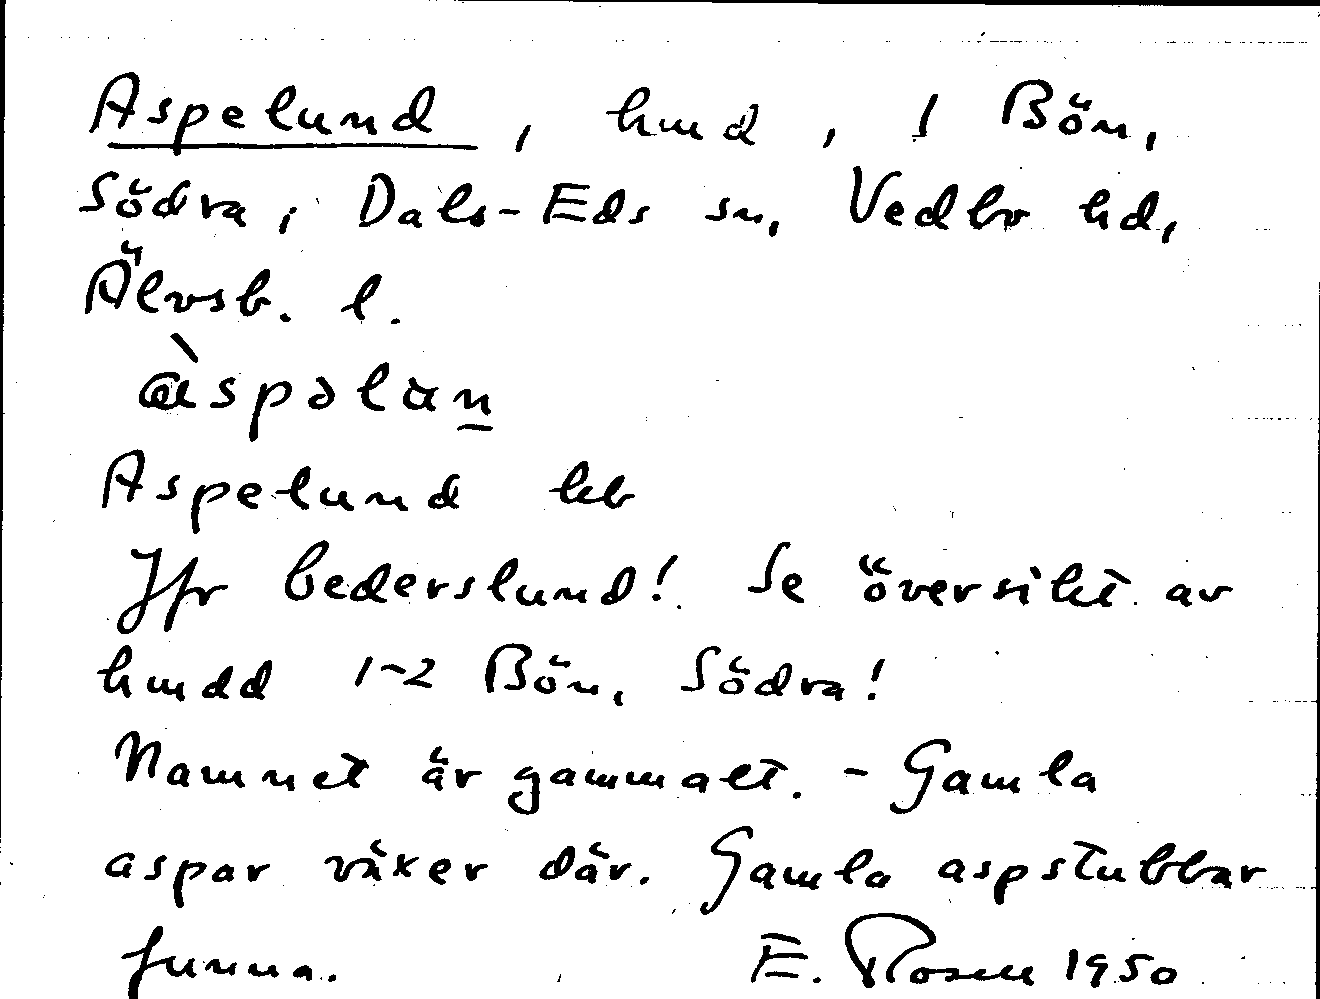 Aspelund, hmd, 1 Bön,
Södra, Dals-Eds sn, Vedbo hd,
Älvsb. l.
àspəlun
Aspelund kb
Jfr Cederslund! Se översikt av
hmdd 1-2 Bön, Södra!
Namnet är gammalt. - Gamla
aspar växer där. Gamla aspstubbar
funna. E. Rosen 1950